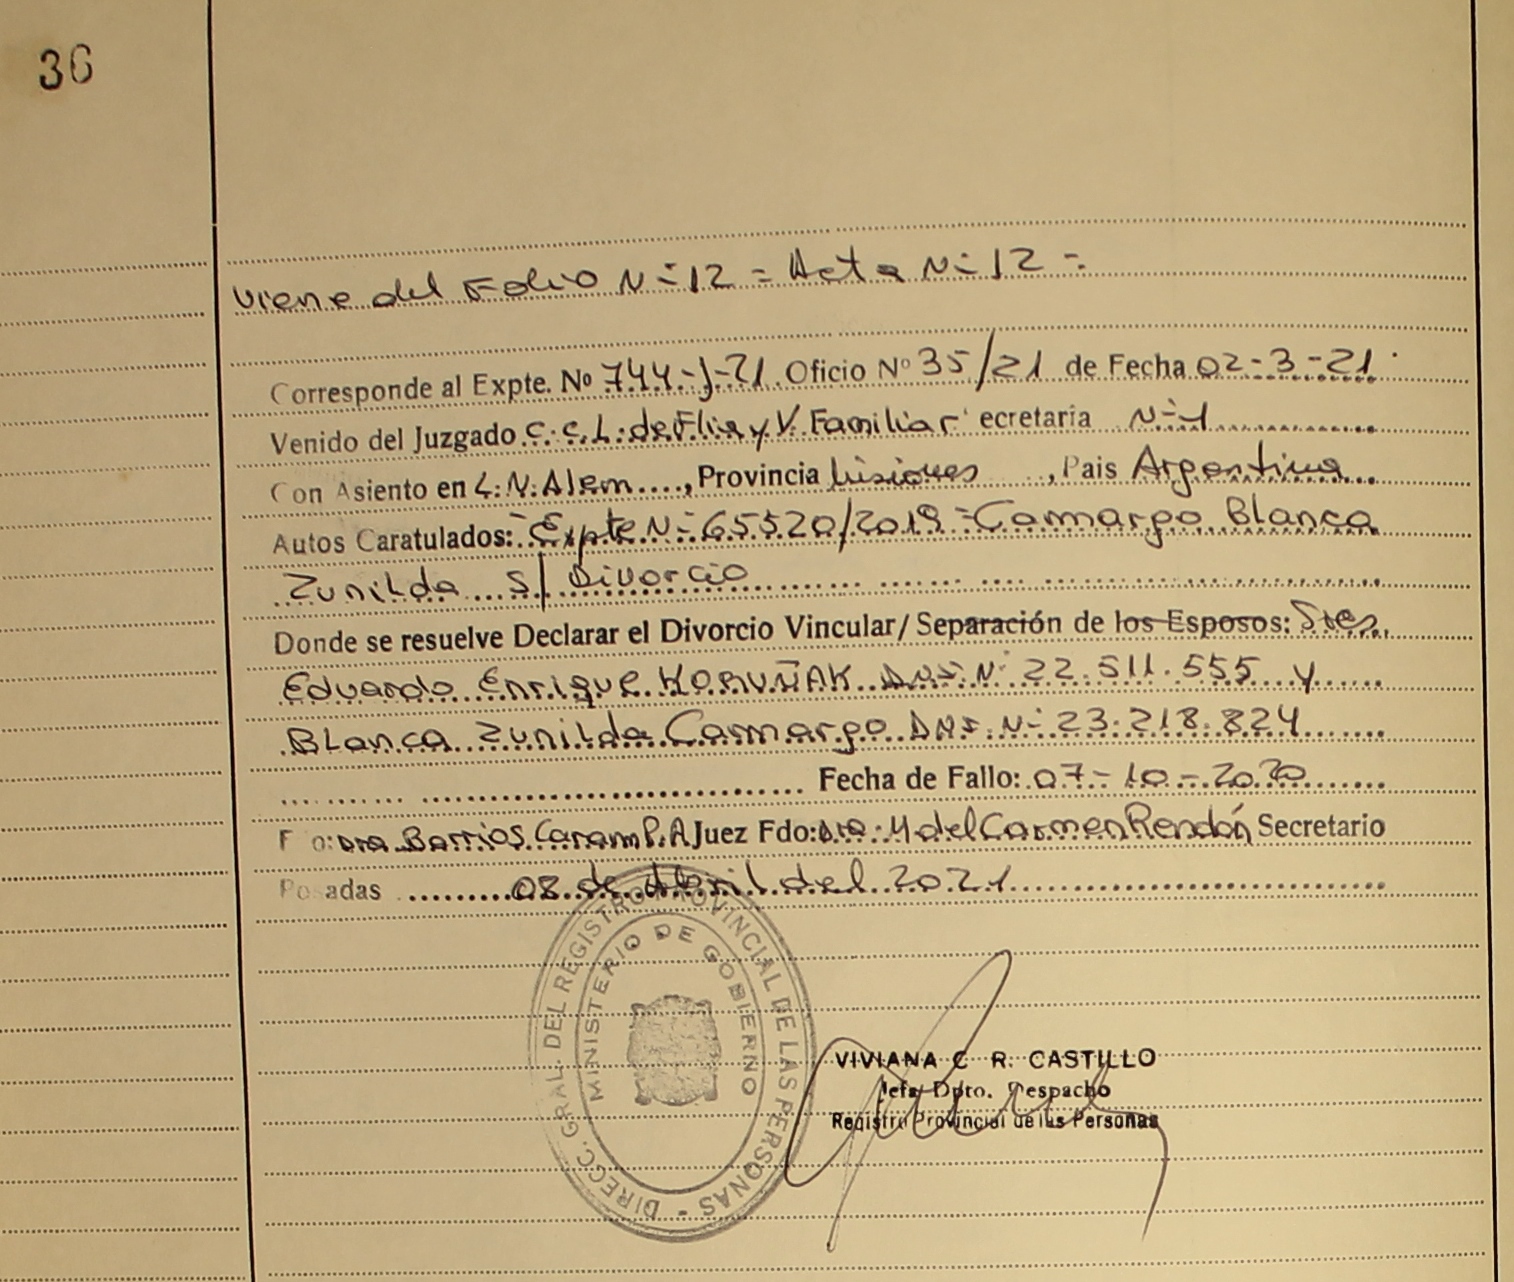 36
Viene del Folio N=12 = Acta N=12 =
Corresponde al Expte. Nº 744-J-21 Oficio Nº 35/21 de Fecha 02-3-21.
Venido del Juzgado C.C.L. de Flia y V. Familiar ecretaria N=1
Con Asiento en L.N. Alem...., Provincia Misiones, Pais Argentina
Autos Caratulados: Expte N=65520/2019 = Camargo Blanca
Zunilda S/ Divorcio
Donde se resuelve Declarar el Divorcio Vincular/ Separación de los Esposos: Sres.
Eduardo Enrique KORUÑAK DNI N= 22.511.555 y
Blanca Zunilda Camargo DNI N= 23.218.824
Fecha de Fallo: 07-10-2020
F o: Dra Barrios Caram P.A Juez Fdo: Dra. M del Carmen Rendón Secretario
Posadas 08 de Abril del 2021
DIRECC. GRAL. DEL REGISTRO PROVINCIAL DE LAS PERSONAS -
MINISTERIO DE GOBIERNO
VIVIANA C R. CASTILLO
Jefa Dpto. Despacho
Registro Provincial de las Personas